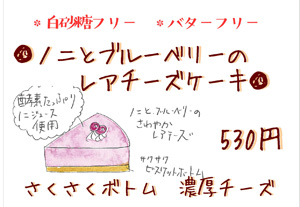 *白砂糖フリー *バターフリー
ノニとブルーベリーの
レアチーズケーキ
酵素たっぷり
ノニジュース
使用
ノニと、ブルーベリーの
さわやか
レアチーズ
530円
サクサク
ビスケットボトム
さくさくボトム 濃厚チーズ